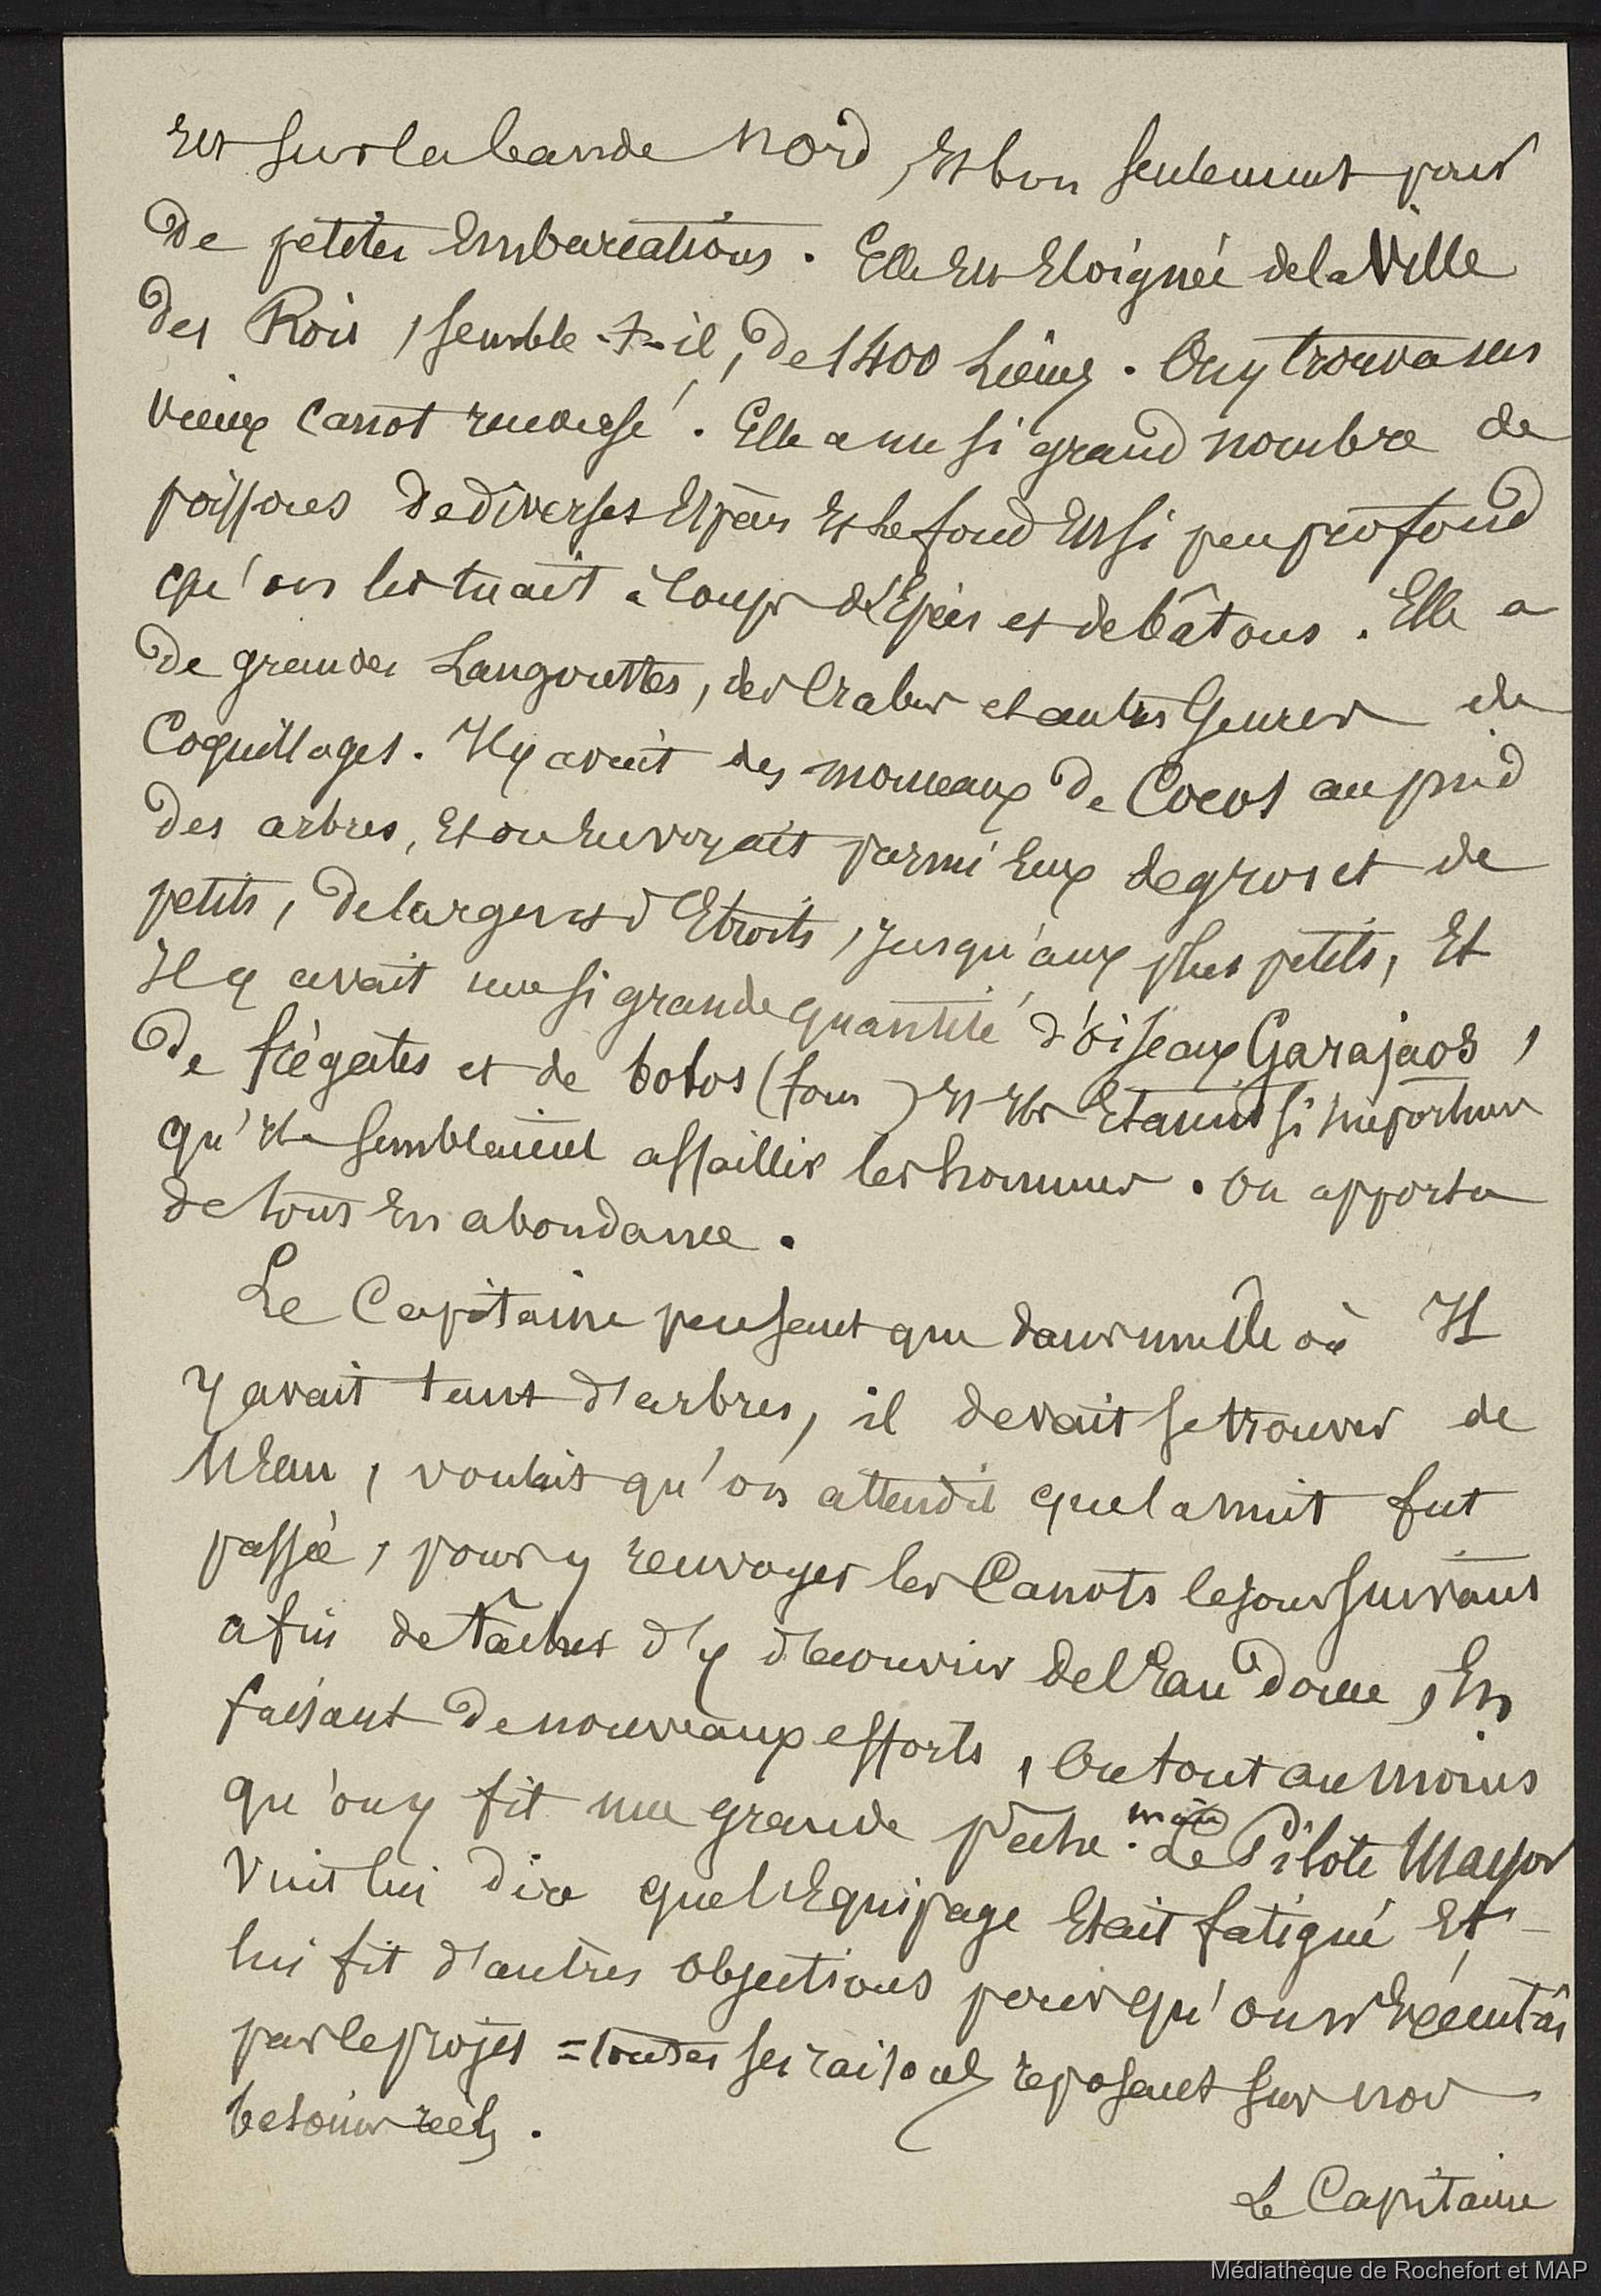 Est sur la bande Nord, Et bon seulement pour
De petites Embarcations. Elle Est Eloignée de la Ville
des Rois, semble-t-il, de 1400 Lieues. On y trouva un
vieux canot renversé. Elle a un si grand nombre de
poissons de diverses Espèces Et le fond Est si peu profond
qu'on les tuait à coups d'Epées et de bâtons. Elle a
De grandes Langoustes, des Crabes et autres Genres de
Coquillages. Il y avait des morceaux de Cocos au pied
des arbres, Et on En voyait parmi Eux de gros et de
petits, de larges et d'Etroits, jusqu'aux plus petits, Et
Il y avait une si grande quantité d'oiseaux Garajaos,
De frégates et de bobos (fous) Et Ils Etaient si importuns
qu'Ils semblaient assaillir les hommes. On apporta
de tous En abondance.
Le Capitaine pensant que dans une Ile où Il
y avait tant d'arbres, il devait se trouver de
l'Eau, voulait qu'on attendit que la nuit fut
passée, pour y renvoyer les Canots le jour suivant
afin de tâcher d'y découvrir de l'Eau douce, En
faisant de nouveaux efforts, Ou tout au moins
qu'on y fit une grande pêche. Le Pilote Mayor
vint lui dire que l'Equipage Etait fatigué Et
lui fit d'autres objections pour qu'on n'Exécutât
pas le projet = toutes ses raisons reposant sur nos
besoins réels.
Le Capitaine
Médiathèque de Rochefort et MAP